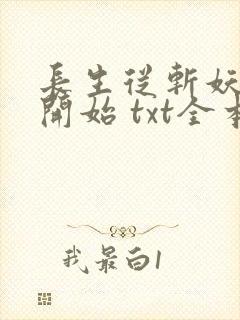 長生從斬妖
開始 txt全本
我最白1